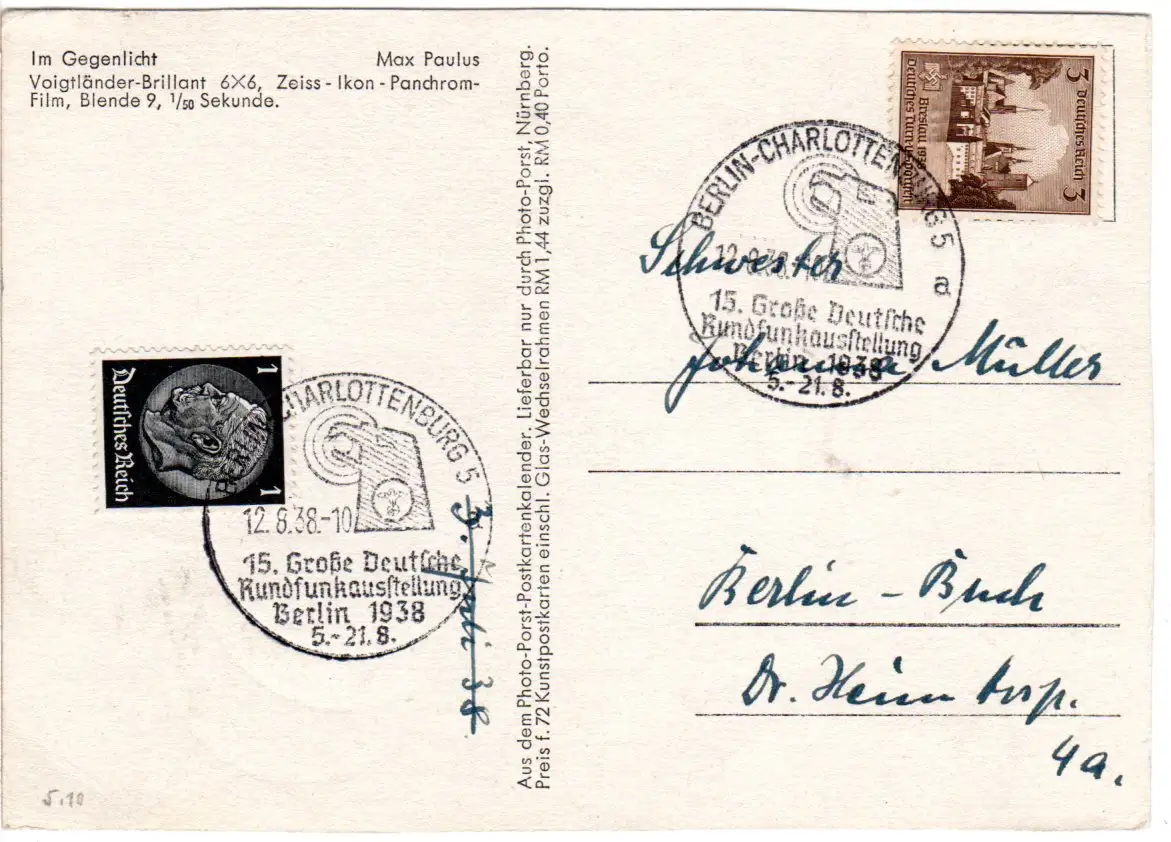 Im Gegenlicht Max Paulus
Voigtländer-Brillant 6X6, Zeiss-Ikon-Panchrom-
Film, Blende 9, 1/50 Sekunde.
Aus dem Photo-Porst-Postkartenkalender. Lieferbar nur durch Photo-Porst, Nürnberg.
Preis f. 72 Kunstpostkarten einschl. Glas-Wechselrahmen RM 1,44 zuzgl. RM 0,40 Porto.
3 Deutsches Reich 3
Breslau 1938
BERLIN-CHARLOTTENBURG 5
a
12.8.38.
15. Große Deutsche
Rundfunkausstellung
Berlin 1938
5.-21.8.
Schwester
Johanna Müller
Berlin - Buch
Dr. Heim
4a.
1 1
Deutsches Reich
BERLIN-CHARLOTTENBURG 5
12.8.38.-10
15. Große Deutsche
Rundfunkausstellung
Berlin 1938
5.-21.8.
38
5.10